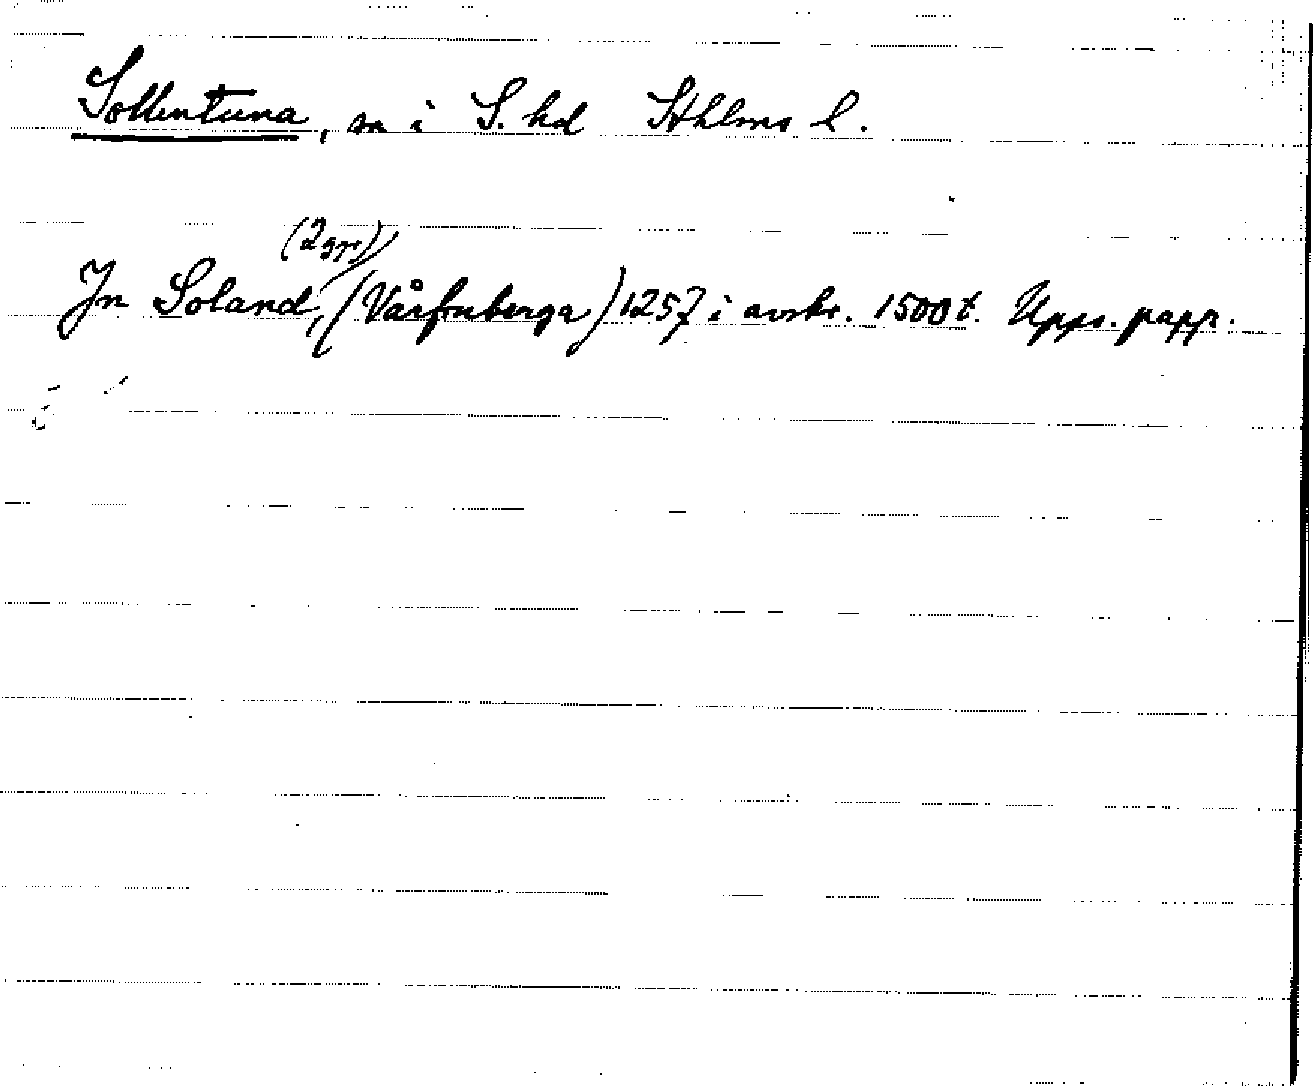 Sollentuna, sn i S. hd Sthlms l.
(2 ggr)
In Soland, (Vårfruberga) 1257 i avskr. 1500 t. Upps. papp.